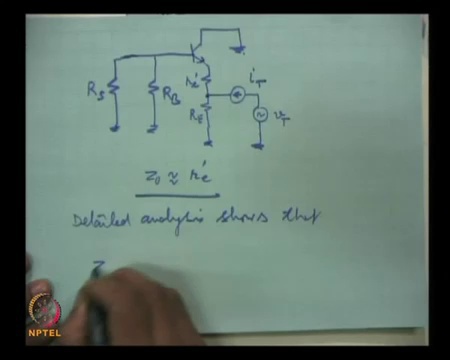 r'e
iT
RS
RB
RE
vT
zo ≈ r'e
Detailed analysis shows that
Z
NPTEL